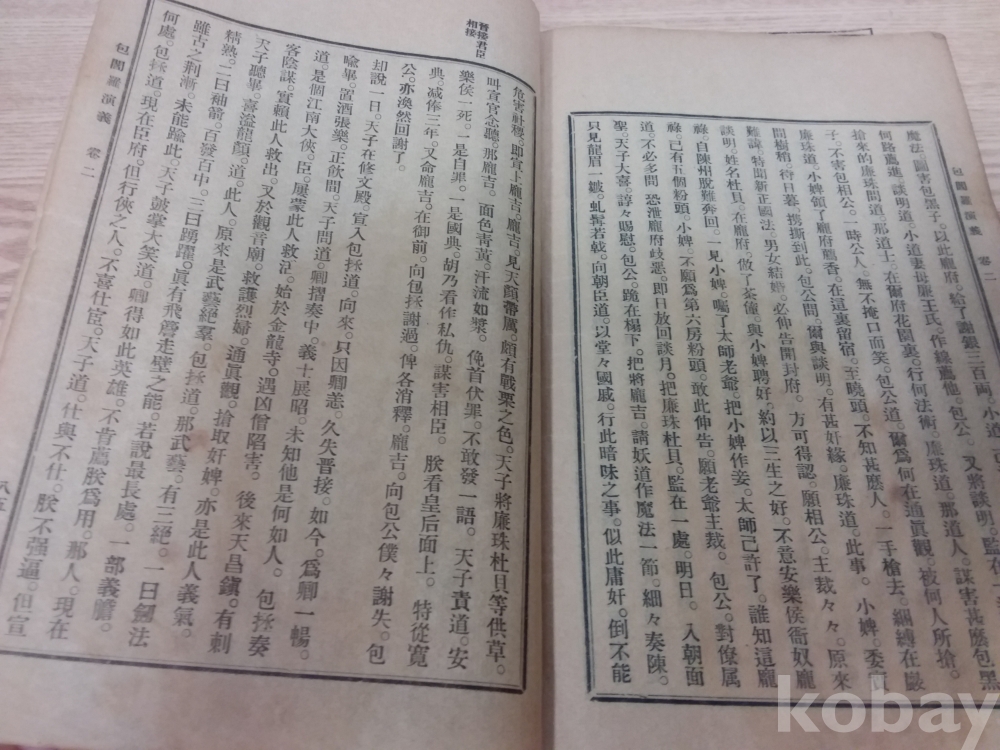 魔法。圖害包黑子。以此龐府。給了謝銀三百兩。
何路薦進。談明道。小道妻母廉王氏。作線薦他。包公。又將談明。監在
搶來的廉珠問道。那道士。在爾府花園裏。行何法術。廉珠道。那道人。謀害甚麽包黑
子。不害包相公。一時公人。無不掩口而笑。包公道。爾爲何在通眞觀。被何人所搶。
廉珠道。小婢領了龐府薦香。在這裏留宿。王曉頭。不知甚麽人。一手槍去。綑縛在嚴
間樹稍。待日暮。携撕到此。包公問。爾與談明。有甚奸緣。廉珠道。此事。小婢。委
難諱。特聞新正國法。男女結婚。必伸告開封府。方可得認。願相公。主裁々々。原來
談明。姓名杜貝。在龐府。做了茶傭。與小婢聘好。約以三生之好。不意安樂侯衙奴龐
祿。自陳州脫難奔回。一見小婢。囑了太師老爺。把小婢作妾。太師已許了。誰知這龐
祿。已有五個粉頭。小婢。不願爲第六房粉頭。敢此伸告。願老爺主裁。包公。對僚属
道。不必多問。恐泄龐府歧惡。即日放回談月。把廉珠杜貝。監在一處。明日。入朝面
聖。天子大喜。諄々賜慰。包公。跪在榻下。把將龐吉。請妖道作魔法一節。細々奏陳。
只見龍眉一皺。虬髯若戟。向朝臣道。以堂々國戚。行此暗昧之事。似此庸奸。倒不能
包閻羅演義 卷二
晋接君臣
相接
危害社稷。即宣上龐吉。龐吉。見天顏帶厲。頗有戰栗之色。天子將廉珠杜貝等供草。
叫宣官念聽。那龐吉。面色靑黃。汗流如漿。俛首伏罪。不敢發一語。天子責道。安
樂侯一死。一是自罪。一是國典。胡乃看作私仇。謀害相臣。朕看皇后面上。特從寬
典。减俸三年。又命龐吉。在御前。向包拯謝過。俾各消釋。龐吉。向包公僕々謝失。包
公。亦渙然回謝了。
却說一日。天子在修文殿。宣入包拯道。向來。只因卿恙。久失晋接。如今。爲卿一暢。
喩畢。置酒張樂。正飮間。天子問道。卿摺奏中。義士展昭。未知他是何如人。包拯奏
道。是個江南大俠。臣。屢蒙此人救活。始於金龍寺。遇凶僧陷害。後來天昌鎭。有刺
客陰謀。實賴此人救出。又於觀音廟。救護烈婦。通眞觀。搶取奸婢。亦是此人義氣。
天子聽畢。喜溢龍顏。道。此人。原來是武藝絕羣。包拯道。那武藝。有三絕。一曰劒法
精熟。二曰袖箭。百發百中。三曰踴躍。眞有飛簷走壁之能。若說最長處。一部義膽。
雖古之荆漸。未能踰此。天子皷掌大笑道。卿得如此英雄。不肯薦朕爲用。那人。現在
何處。包拯道。現在臣府。但行俠之人。不喜仕宦。天子道。仕與不仕。朕不强逼。但宣
包閻羅演義 卷二
kobay